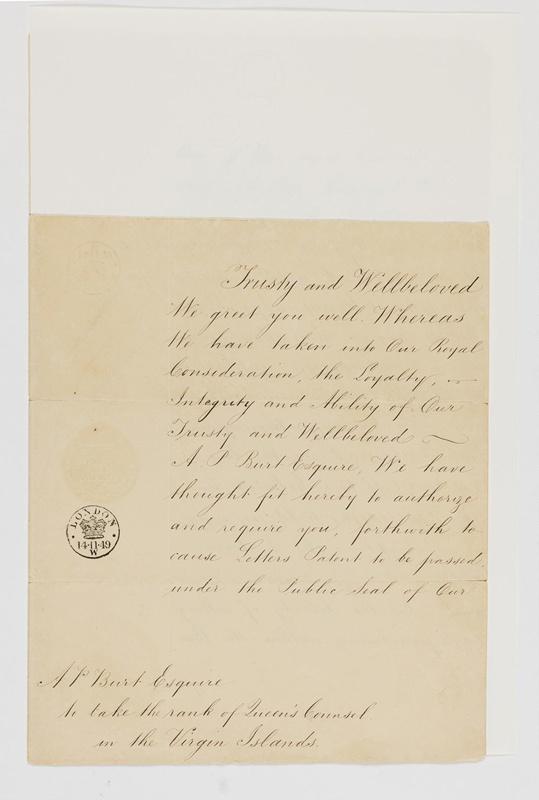 Trusty and Wellbeloved
We greet you well. Whereas
We have taken into Our Royal
Consideration, the Loyalty,
Integrity and Ability of Our
Trusty and Wellbeloved
A. P Burt Esquire, We have
thought fit hereby to authorize
and require you, forthwith to
cause Letters Patent to be passed
under the Public Seal of Our
LONDON
14·11·49
W
A P Burt Esquire
to take the rank of Queen's Counsel
in the Virgin Islands.